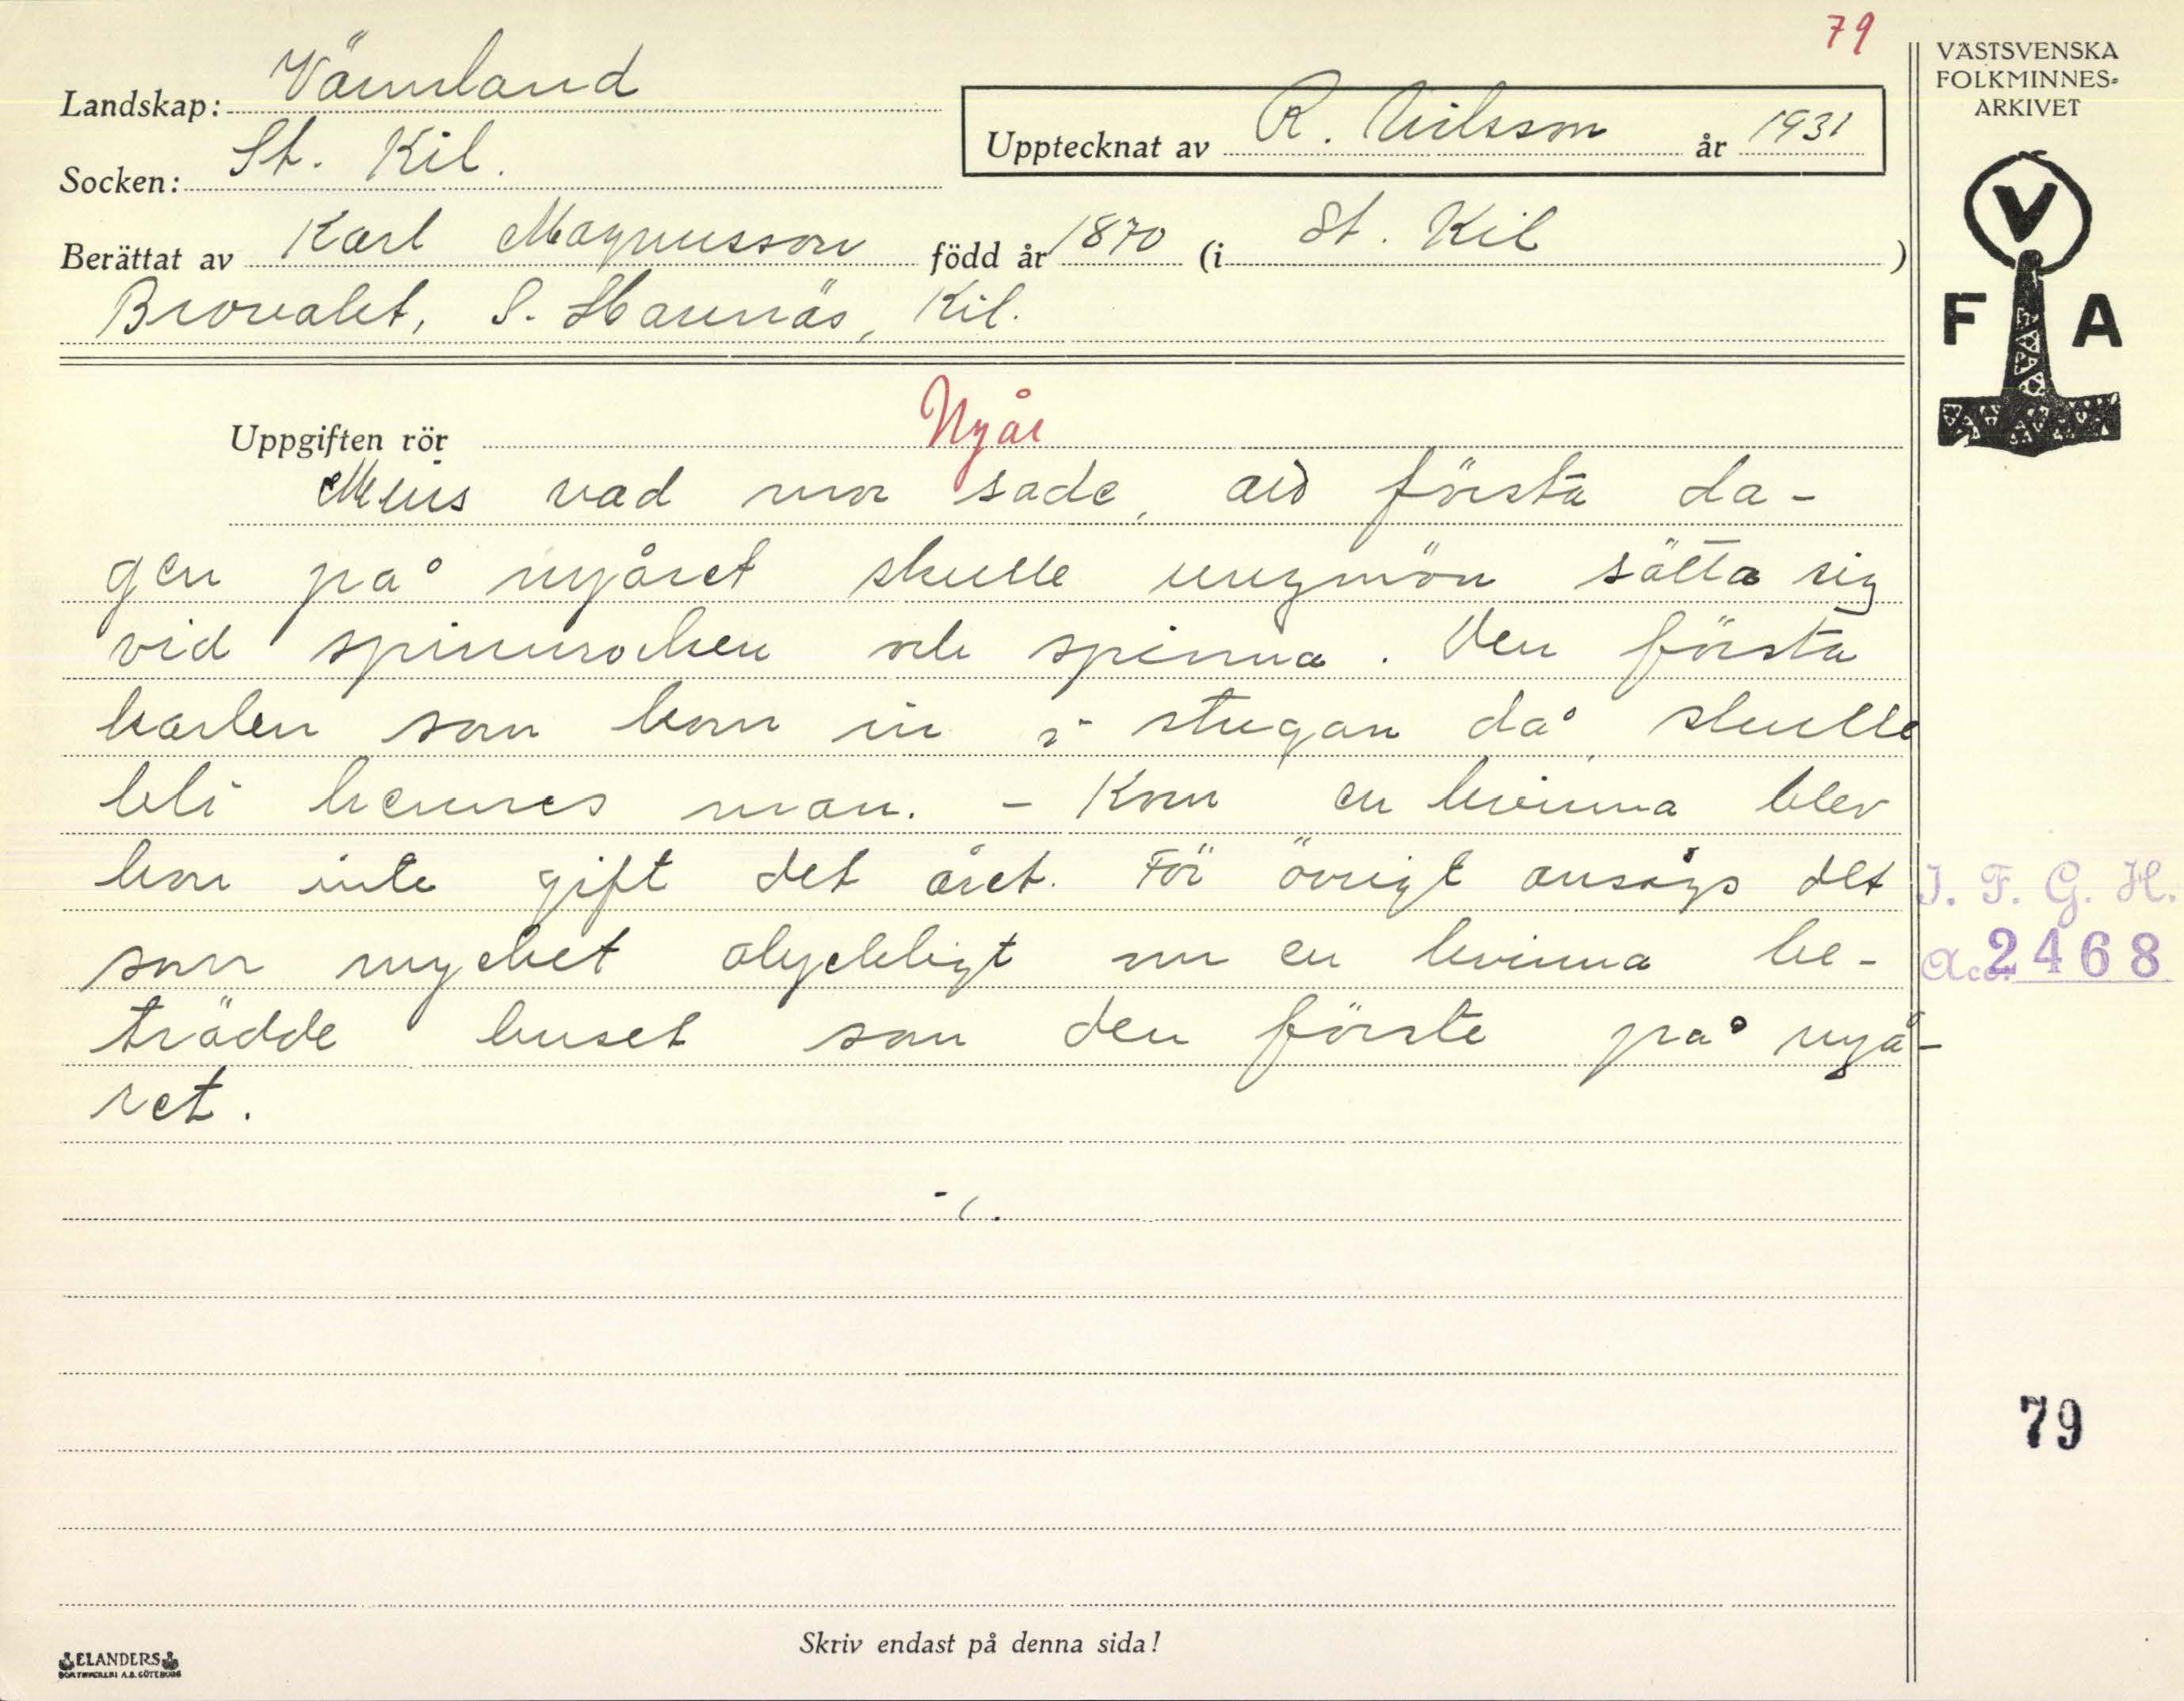 79
VÄSTSVENSKA
FOLKMINNES-
ARKIVET
Landskap: Värmland
Upptecknat av R. Nilsson år 1931
Socken: St. Kil.
Berättat av Karl Magnusson född år 1870 (i St. Kil)
S. Hannäs, Kil.
V
F A
Uppgiften rör Nyår
Minns vad mor sade, att första da-
gen på nyåret skulle ungmön sätta sig
vid spinnrocken och spinna. Den första
karlen som kom in i stugan då, skulle
bli hennes man. - Kom en kvinna blev
hon inte gift det året. För övrigt ansågs det
som mycket olyckligt om en kvinna be-
trädde huset som den förste på nyå-
ret.
-/.
I. F. G. H.
Acc. 2468
79
Skriv endast på denna sida!
ELANDERS
BOKTRYCKERI A.B. GÖTEBORG